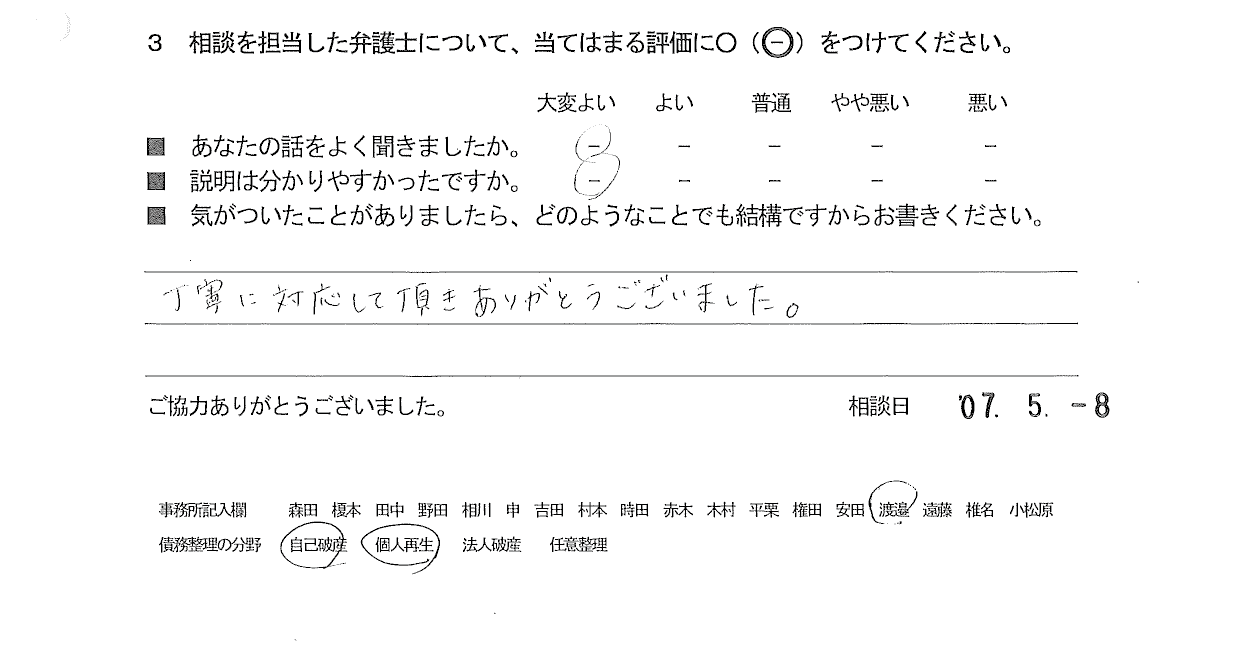 3 相談を担当した弁護士について、当てはまる評価に○（㊀）をつけてください。
大変よい よい 普通 やや悪い 悪い
■ あなたの話をよく聞きましたか。 − − − − −
■ 説明は分かりやすかったですか。 − − − − −
■ 気がついたことがありましたら、どのようなことでも結構ですからお書きください。
丁寧に対応して頂きありがとうございました。
ご協力ありがとうございました。 相談日 '07. 5. -8
事務所記入欄 森田 榎本 田中 野田 相川 申 吉田 村本 時田 赤木 木村 平栗 権田 安田 渡邉 遠藤 椎名 小松原
債務整理の分野 自己破産 個人再生 法人破産 任意整理